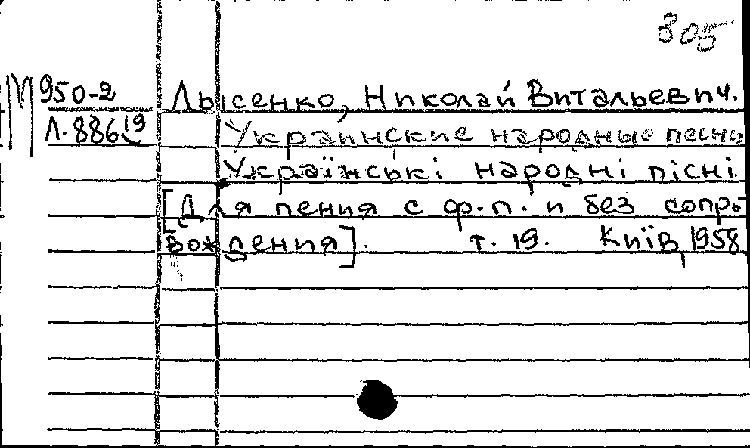 305
М 950-2
Л.886 19
Лысенко, Николай Витальевич.
Украинские народные песни
Українські народні пісні
[Для пения с ф.-п. и без сопро-
вождения]. т. 19. Київ, 1958